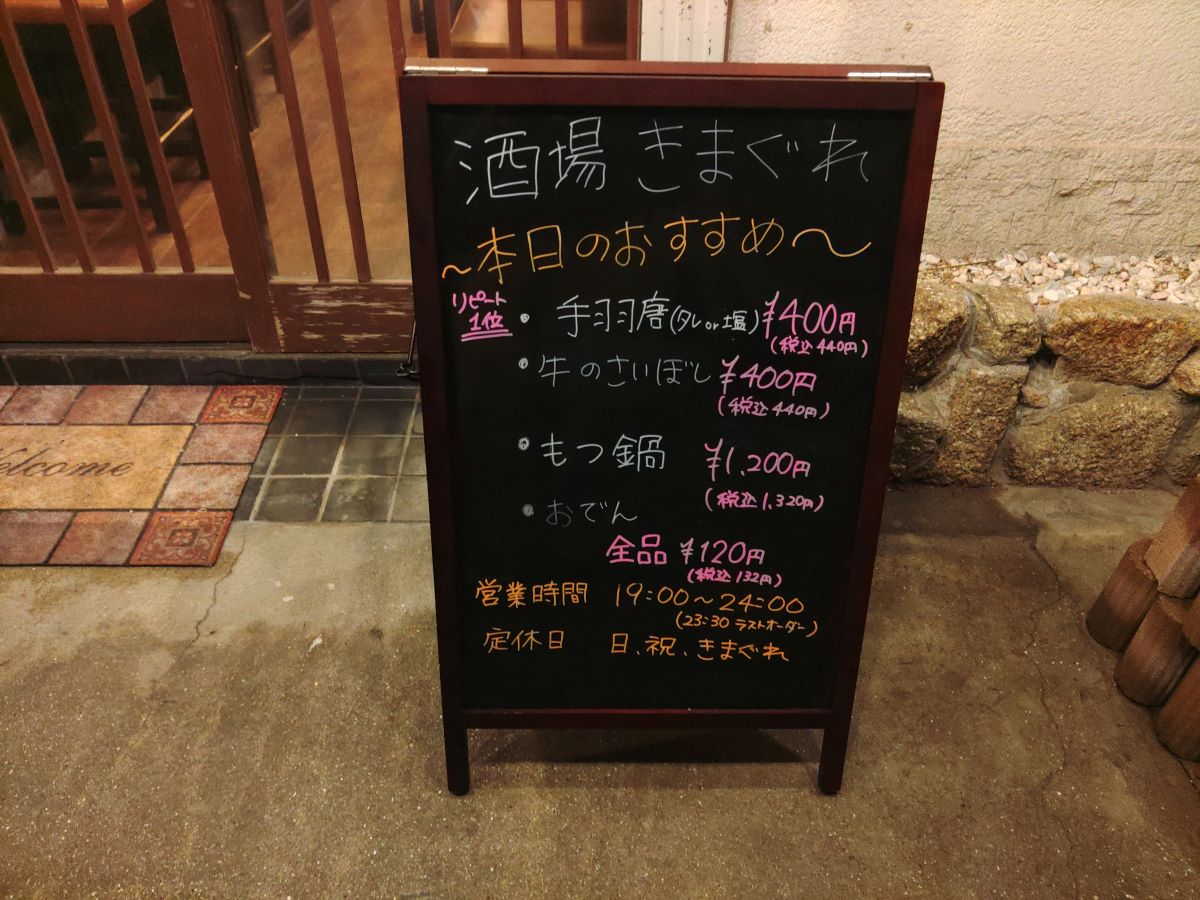 酒場 きまぐれ
~本日のおすすめ~
リピート
1位
・手羽唐(タレor塩) ¥400円
(税込440円)
・牛のさいぼし ¥400円
(税込440円)
・もつ鍋 ¥1,200円
(税込1,320円)
・おでん
全品 ¥120円
(税込132円)
営業時間 19:00~24:00
(23:30 ラストオーダー)
定休日 日、祝、きまぐれ
Welcome